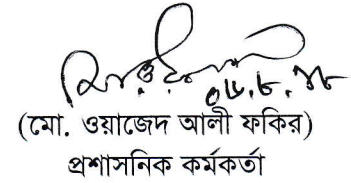 (মো. ওয়াজেদ আলী ফকির)
প্রশাসনিক কর্মকর্তা